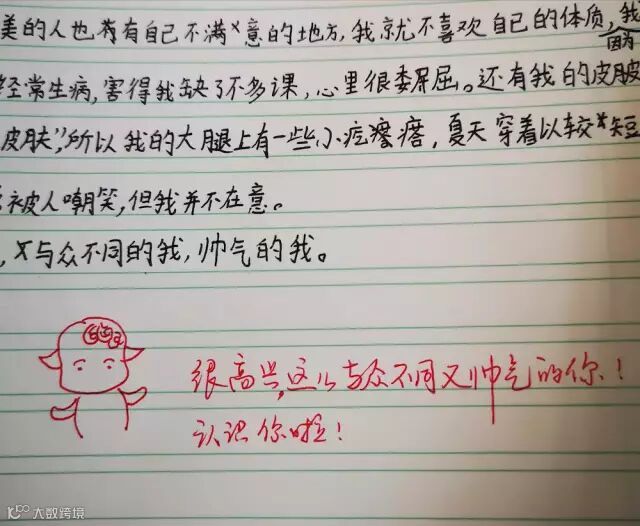 美的人也有自己不满意的地方,我就不喜欢自己的体质,我
因为
经常生病,害得我缺了不多课,心里很委屈屈。还有我的皮肤
皮肤”,所以我的大腿上有一些小疙瘩瘩,夏天穿着以较短
被人嘲笑,但我并不在意。
,与众不同的我,帅气的我。
很高兴,这么与众不同又帅气的你!
认识你啦!
大数跨境